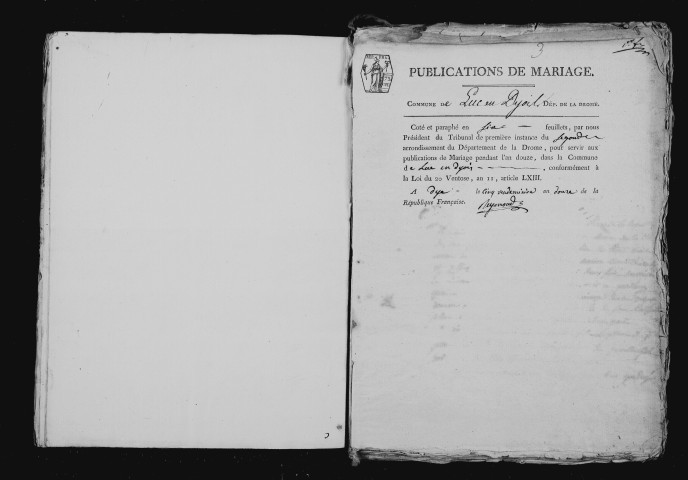 3
PUBLICATIONS DE MARIAGE.
COMMUNE de Luc en Dyois DÉP. DE LA DROME.
Coté et paraphé en six feuillets, par nous
Président du Tribunal de première instance du second
arrondissement du Département de la Drome, pour servir aux
publications de Mariage pendant l'an douze, dans la Commune
de Luc en dyois, conformément à
la Loi du 20 Ventose, an 11, article LXIII.
A dye le cinq vendemiaire an douze de la
République Française.